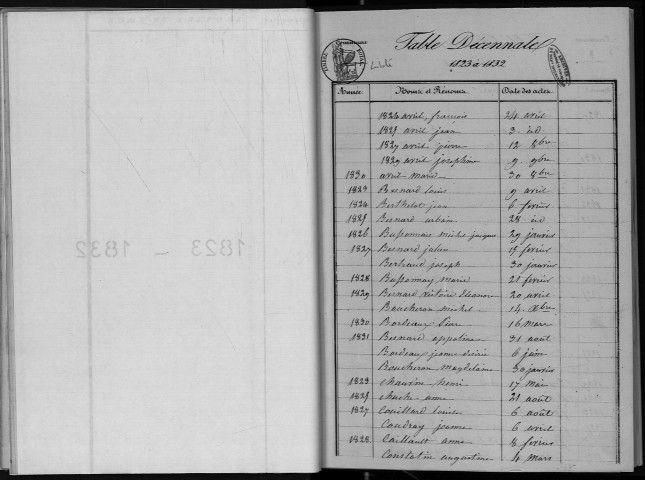 Table Décennale
1823 à 1832
Année Noms et Prénoms Date des actes
1824 avril françois 24 avril
1825 avril jean 3 id
1827 avril pierre 12 8bre
1829 avril josephine 9 9bre
1830 avril marie 30 8bre
1823 Besnard louis 9 avril
1824 Berthelot jean 6 fevrier
1825 Besnard urbain 28 id
1826 Bussonnais michel jacques 29 janvier
1827 Besnard julien 15 fevrier
Bertrand joseph 30 janvier
1828 Bussonnay marie 21 fevier
1829 Besnard victoire Eleonore 20 avril
Boucheron michel 14 Xbre
1830 Bordeaux Pierre 16 mars
1831 Besnard appoline 31 août
Bordeaux jeanne désirée 6 juin
Boucheron magdelaine 30 janvier
1823 chauvin henri 17 Mai
1825 anne 21 août
1827 Couillard louise 6 août
Coudray jeanne 6 avril
1828 Caillault anne 8 fevrier
Constatin augustine 4 Mars
1823 – 1832